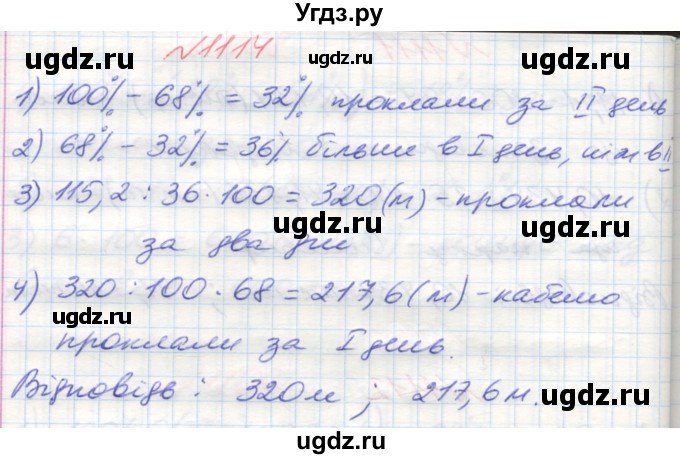 Угдз.ру
№1114
1) 100% - 68% = 32% проклали за II день
2) 68% - 32% = 36% більше в I день, ніж в II
3) 115,2 : 36 · 100 = 320 (м) - проклали
за два дні
4) 320 : 100 · 68 = 217,6 (м) - кабелю
проклали за I день.
Відповідь: 320м; 217,6м.
ugdz.ru
ugdz.ru
ugdz.ru
ugdz.ru
ugdz.ru
ugdz.ru
ugdz.ru
ugdz.ru